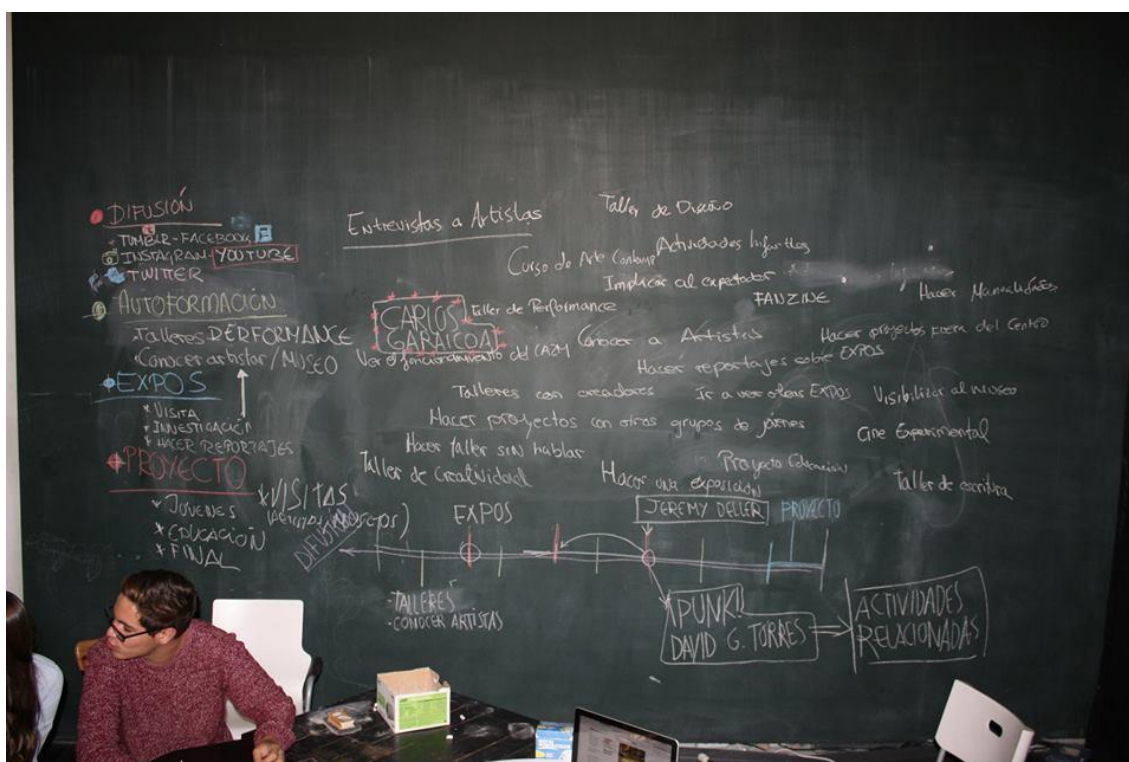 DIFUSIÓN
- TUMBLR - FACEBOOK
INSTAGRAM - YOUTUBE
TWITTER
AUTOFORMACIÓN
- Talleres PERFORMANCE
- Conocer artistas / MUSEO
EXPOS
* VISITA
* INVESTIGACIÓN
* HACER REPORTAJES
PROYECTO
* JÓVENES
* EDUCACIÓN
* FINAL
* VISITAS
Entrevistas a Artistas
Taller de Diseño
Curso de Arte Contemp
Actividades Infantiles
Implicar al expectador
FANZINE
Hacer Manualidades
CARLOS
GARAICOA
Taller de Performance
Ver el funcionamiento del CA2M
Conocer a Artistas
Hacer proyectos fuera del Centro
Hacer reportajes sobre EXPOS
Talleres con creadores
Ir a ver otras EXPOS
Visibilizar al museo
Hacer proyectos con otros grupos de jóvenes
Cine Experimental
Hacer taller sin hablar
Taller de Creatividad
Proyecto Educacion
Hacer una exposición
Taller de escritura
DIFUSIÓN
EXPOS
JEREMY DELLER
PROYECTO
- TALLERES
- CONOCER ARTISTAS
¡PUNK!!
DAVID G. TORRES
ACTIVIDADES
RELACIONADAS